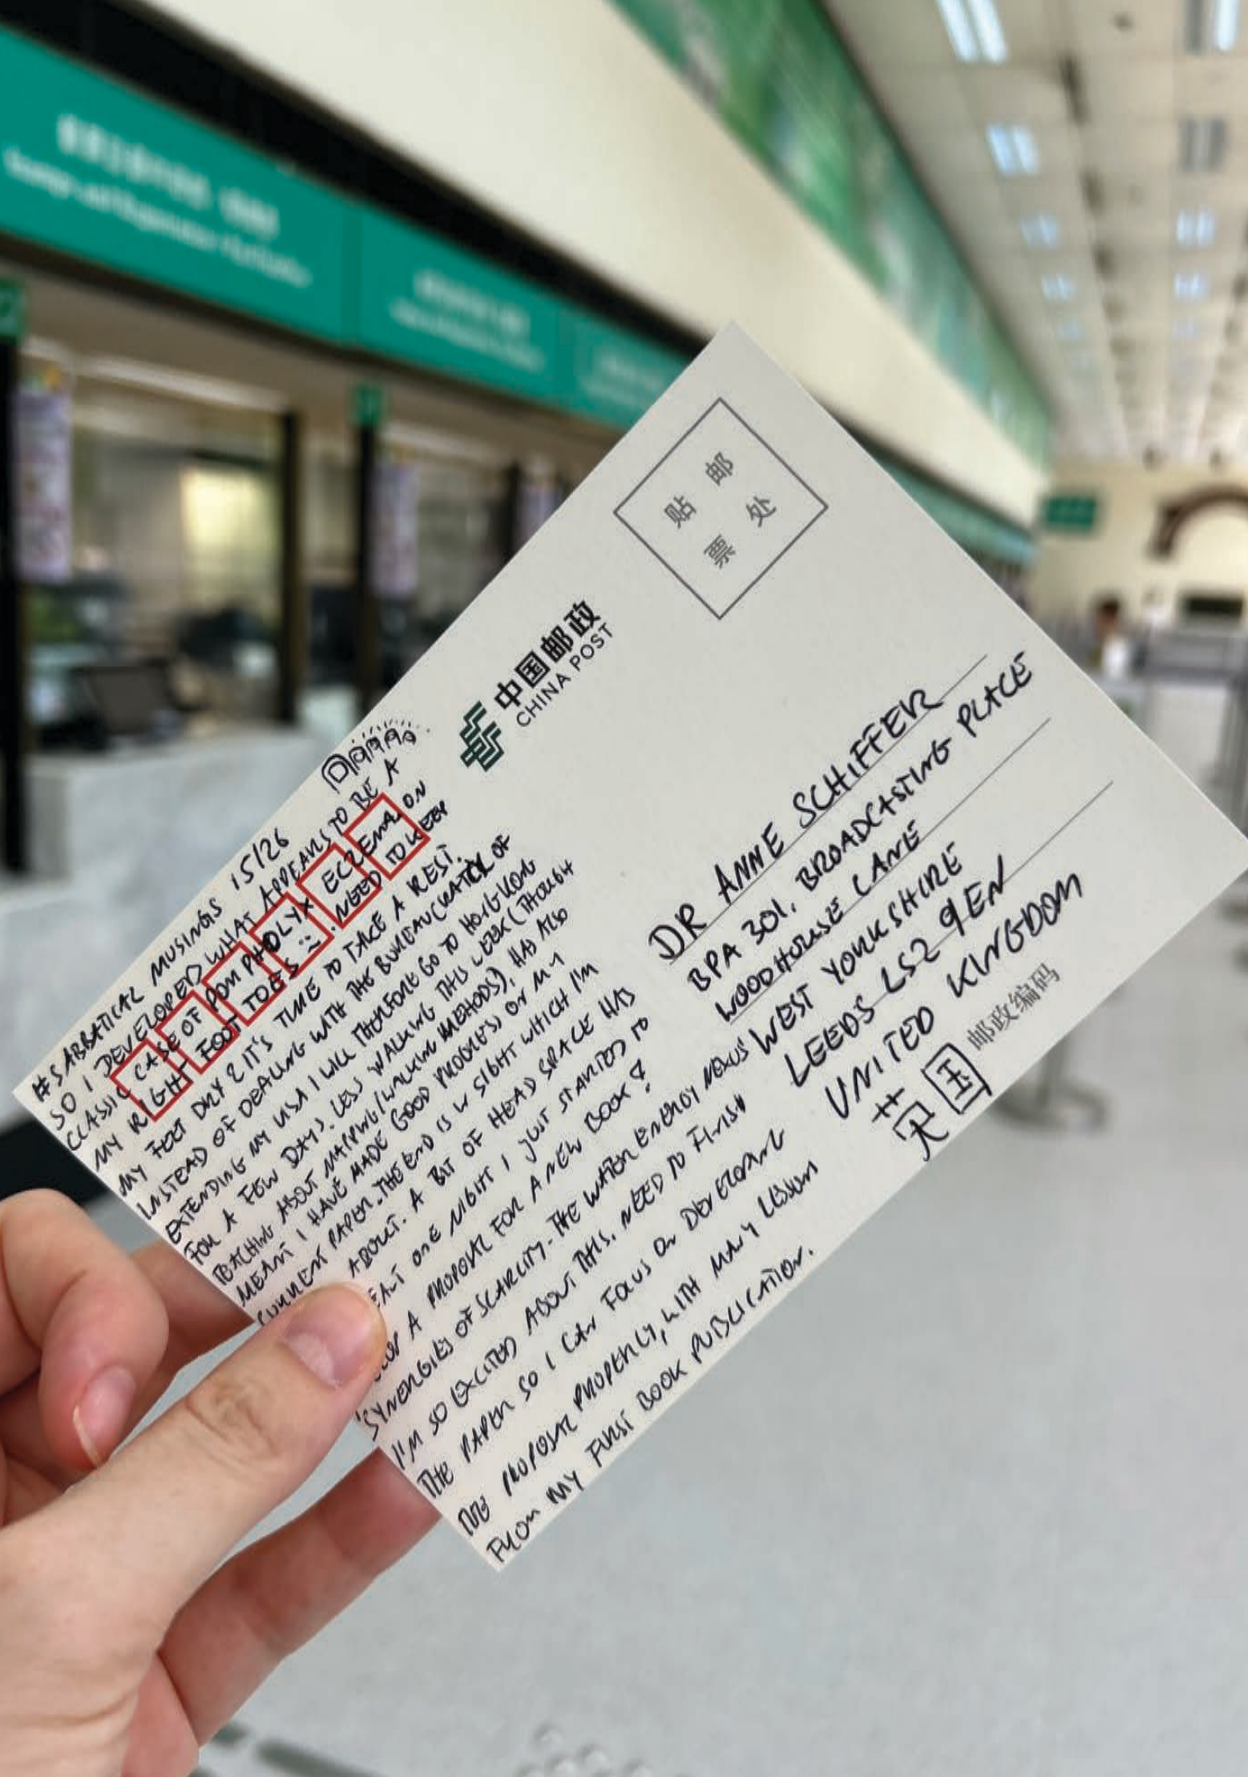 #SABBATICAL MUSINGS 15/26
SO I DEVELOPED WHAT APPEARS TO BE A
CLASSIC CASE OF POMPHOLYX ECZEMA ON
MY RIGHT FOOT TOES :( . NEED TO KEEP
MY FEET DRY & IT'S TIME TO TAKE A REST.
INSTEAD OF DEALING WITH THE BUREAUCRATICY OF
EXTENDING MY VISA I WILL THEREFORE GO TO HONG KONG
FOR A FEW DAYS. LESS WALKING THIS WEEK (THOUGH
TEACHING ABOUT MAPPING/WALKING METHODS), HAS ALSO
MEANT I HAVE MADE GOOD PROGRESS ON MY
CURRENT PAPER. THE END IS IN SIGHT WHICH I'M
ABOUT. A BIT OF HEAD SPACE HAS
MEANT ONE NIGHT I JUST STARTED TO
A PROPOSAL FOR A NEW BOOK?
'SYNERGIES OF SCARCITY - THE WATER ENERGY NEXUS'
I'M SO EXCITED ABOUT THIS. NEED TO FINISH
THE PAPER SO I CAN FOCUS ON DEVELOPING
THE PROPOSAL PROPERLY, WITH MANY LESSON
FROM MY FIRST BOOK PUBLICATION.
贴邮
票处
中国邮政
CHINA POST
DR ANNE SCHIFFER
BPA 301, BROADCASTING PLACE
WOODHOUSE LANE
WEST YORKSHIRE
LEEDS LS2 9EN
UNITED KINGDOM
英国
邮政编码